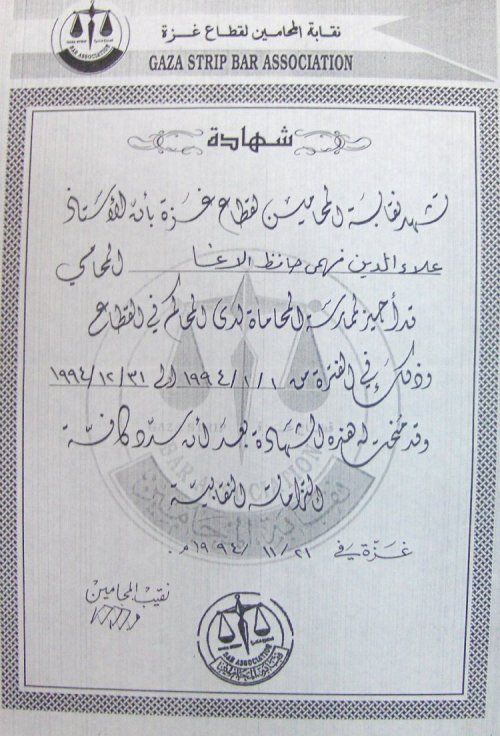 نقابة المحامين لقطاع غزة
GAZA STRIP BAR ASSOCIATION
BAR ASSOCIATION
شهادة
تشهد نقابة المحامين لقطاع غزة بأن الأستاذ
علاء الدين فهمي حافظ الاغا المحامي
قد أجيز لممارسة المحاماة لدى المحاكم في القطاع
وذلك في الفترة من ١/١/١٩٩٤ الى ٣١/١٢/١٩٩٤
وقد منحت له هذه الشهادة بعد أن سدد كافة
التزاماته النقابية
غزة في ٢١/١١/١٩٩٤م.
نقيب المحامين
BAR ASSOCIATION
نقابة المحامين